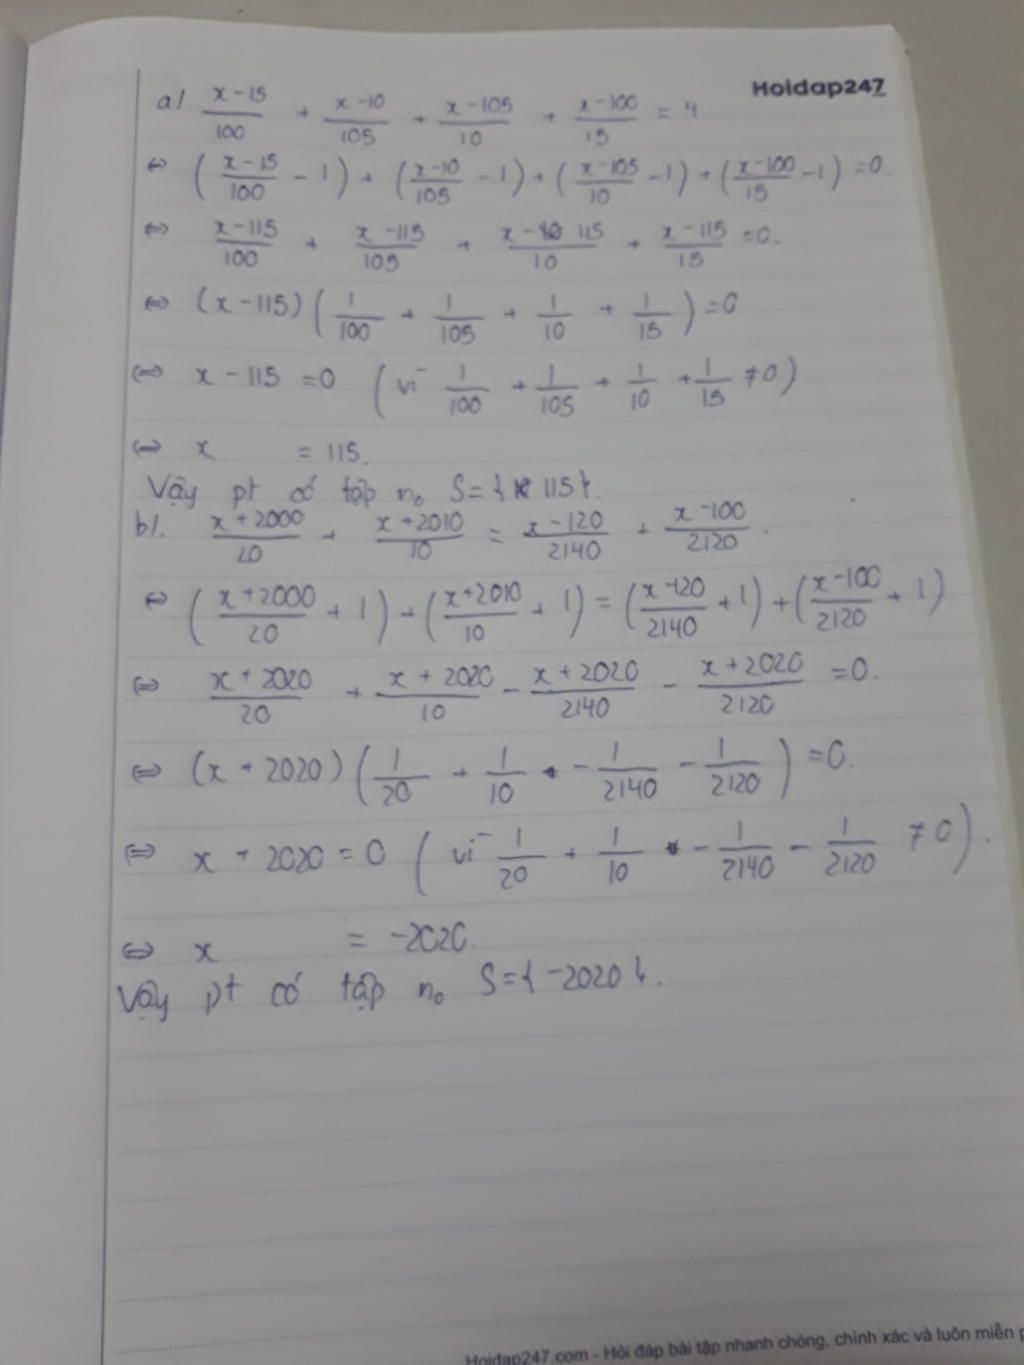 Hoidap247
a) (x-15)/100 + (x-10)/105 + (x-105)/10 + (x-100)/15 = 4
⇔ ((x-15)/100 - 1) + ((x-10)/105 - 1) + ((x-105)/10 - 1) + ((x-100)/15 - 1) = 0.
⇔ (x-115)/100 + (x-115)/105 + (x-115)/10 + (x-115)/15 = 0.
⇔ (x-115)(1/100 + 1/105 + 1/10 + 1/15) = 0
⇔ x - 115 = 0 (vì 1/100 + 1/105 + 1/10 + 1/15 ≠ 0)
⇔ x = 115.
Vậy pt có tập n₀ S = {115}.
b). (x+2000)/20 + (x+2010)/10 = (x-120)/2140 + (x-100)/2120.
⇔ ((x+2000)/20 + 1) + ((x+2010)/10 + 1) = ((x-120)/2140 + 1) + ((x-100)/2120 + 1)
⇔ (x+2020)/20 + (x+2020)/10 - (x+2020)/2140 - (x+2020)/2120 = 0.
⇔ (x+2020)(1/20 + 1/10 - 1/2140 - 1/2120) = 0.
⇔ x + 2020 = 0 (vì 1/20 + 1/10 - 1/2140 - 1/2120 ≠ 0).
⇔ x = -2020.
Vậy pt có tập n₀ S = {-2020}.
Hoidap247.com - Hỏi đáp bài tập nhanh chóng, chính xác và luôn miễn